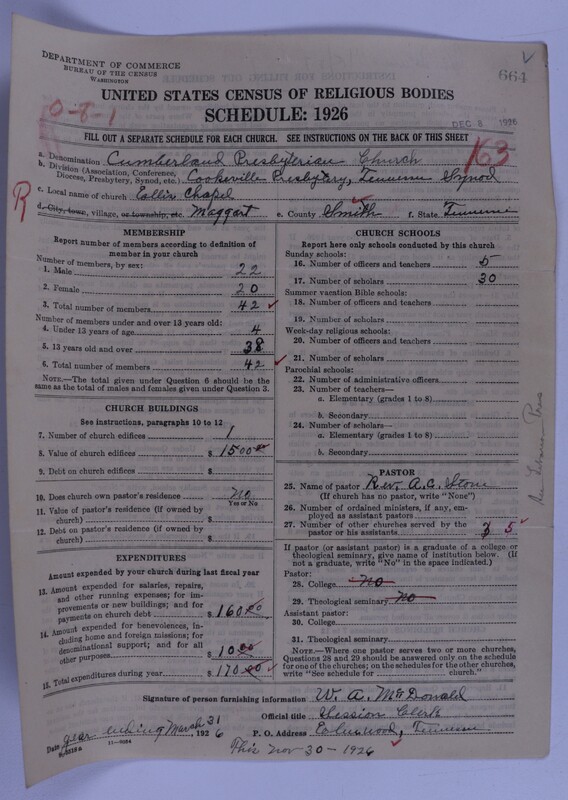 DEPARTMENT OF COMMERCE
BUREAU OF THE CENSUS
WASHINGTON
664
UNITED STATES CENSUS OF RELIGIOUS BODIES
SCHEDULE: 1926
0-8-1
DEC 8 1926
FILL OUT A SEPARATE SCHEDULE FOR EACH CHURCH. SEE INSTRUCTIONS ON THE BACK OF THIS SHEET
163
a. Denomination Cumberland Presbyterian Church
b. Division (Association, Conference, Diocese, Presbytery, Synod, etc.) Cookeville Presbytery, Tennessee Synod
R
c. Local name of church Chapel
d. City, town, village, or township, etc. Maggart e. County Smith f. State Tennessee
MEMBERSHIP
Report number of members according to definition of member in your church
Number of members, by sex:
1. Male 22
2. Female 20
3. Total number of members 42
Number of members under and over 13 years old:
4. Under 13 years of age 4
5. 13 years old and over 38
6. Total number of members 42
NOTE.—The total given under Question 6 should be the same as the total of males and females given under Question 3.
CHURCH BUILDINGS
See instructions, paragraphs 10 to 12
7. Number of church edifices 1
8. Value of church edifices $ 1500.00
9. Debt on church edifices $
10. Does church own pastor's residence No
Yes or No
11. Value of pastor's residence (if owned by church) $
12. Debt on pastor's residence (if owned by church) $
EXPENDITURES
Amount expended by your church during last fiscal year
13. Amount expended for salaries, repairs, and other running expenses; for improvements or new buildings; and for payments on church debt $ 160.00
14. Amount expended for benevolences, including home and foreign missions; for denominational support; and for all other purposes $ 10.00
15. Total expenditures during year $ 170.00
CHURCH SCHOOLS
Report here only schools conducted by this church
Sunday schools:
16. Number of officers and teachers 5
17. Number of scholars 30
Summer vacation Bible schools:
18. Number of officers and teachers
19. Number of scholars
Week-day religious schools:
20. Number of officers and teachers
21. Number of scholars
Parochial schools:
22. Number of administrative officers
23. Number of teachers—
a. Elementary (grades 1 to 8)
b. Secondary
24. Number of scholars—
a. Elementary (grades 1 to 8)
b. Secondary
PASTOR
25. Name of pastor Rev. A.C. Stone
(If church has no pastor, write "None")
26. Number of ordained ministers, if any, employed as assistant pastors
27. Number of other churches served by the pastor or his assistants 3 5
If pastor (or assistant pastor) is a graduate of a college or theological seminary, give name of institution below. (If not a graduate, write "No" in the space indicated.)
Pastor:
28. College No
29. Theological seminary No
Assistant pastor:
30. College
31. Theological seminary
NOTE.—Where one pastor serves two or more churches, Questions 28 and 29 should be answered only on the schedule for one of the churches; on the schedules for the other churches, write "See schedule for church."
Signature of person furnishing information W. A. McDonald
Official title Session Clerk
Date year ending March 31, 1926
P. O. Address Elmwood, Tennessee
11—9084
This Nov 30-1926